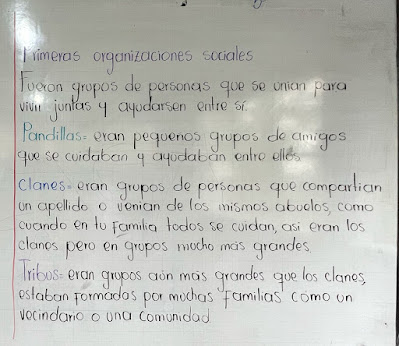 Primeras organizaciones sociales
Fueron grupos de personas que se unian para
vivir juntas y ayudarsen entre sí.
Pandillas= eran pequenos grupos de amigos
que se cuidaban y ayudaban entre ellos
Clanes= eran grupos de personas que compartian
un apellido o venian de los mismos abuelos, como
cuando en tu familia todos se cuidan, asi eran los
clanes pero en grupos mucho más grandes.
Tribus= eran grupos aún más grandes que los clanes,
estaban formadas por muchas familias como un
vecindario o una comunidad